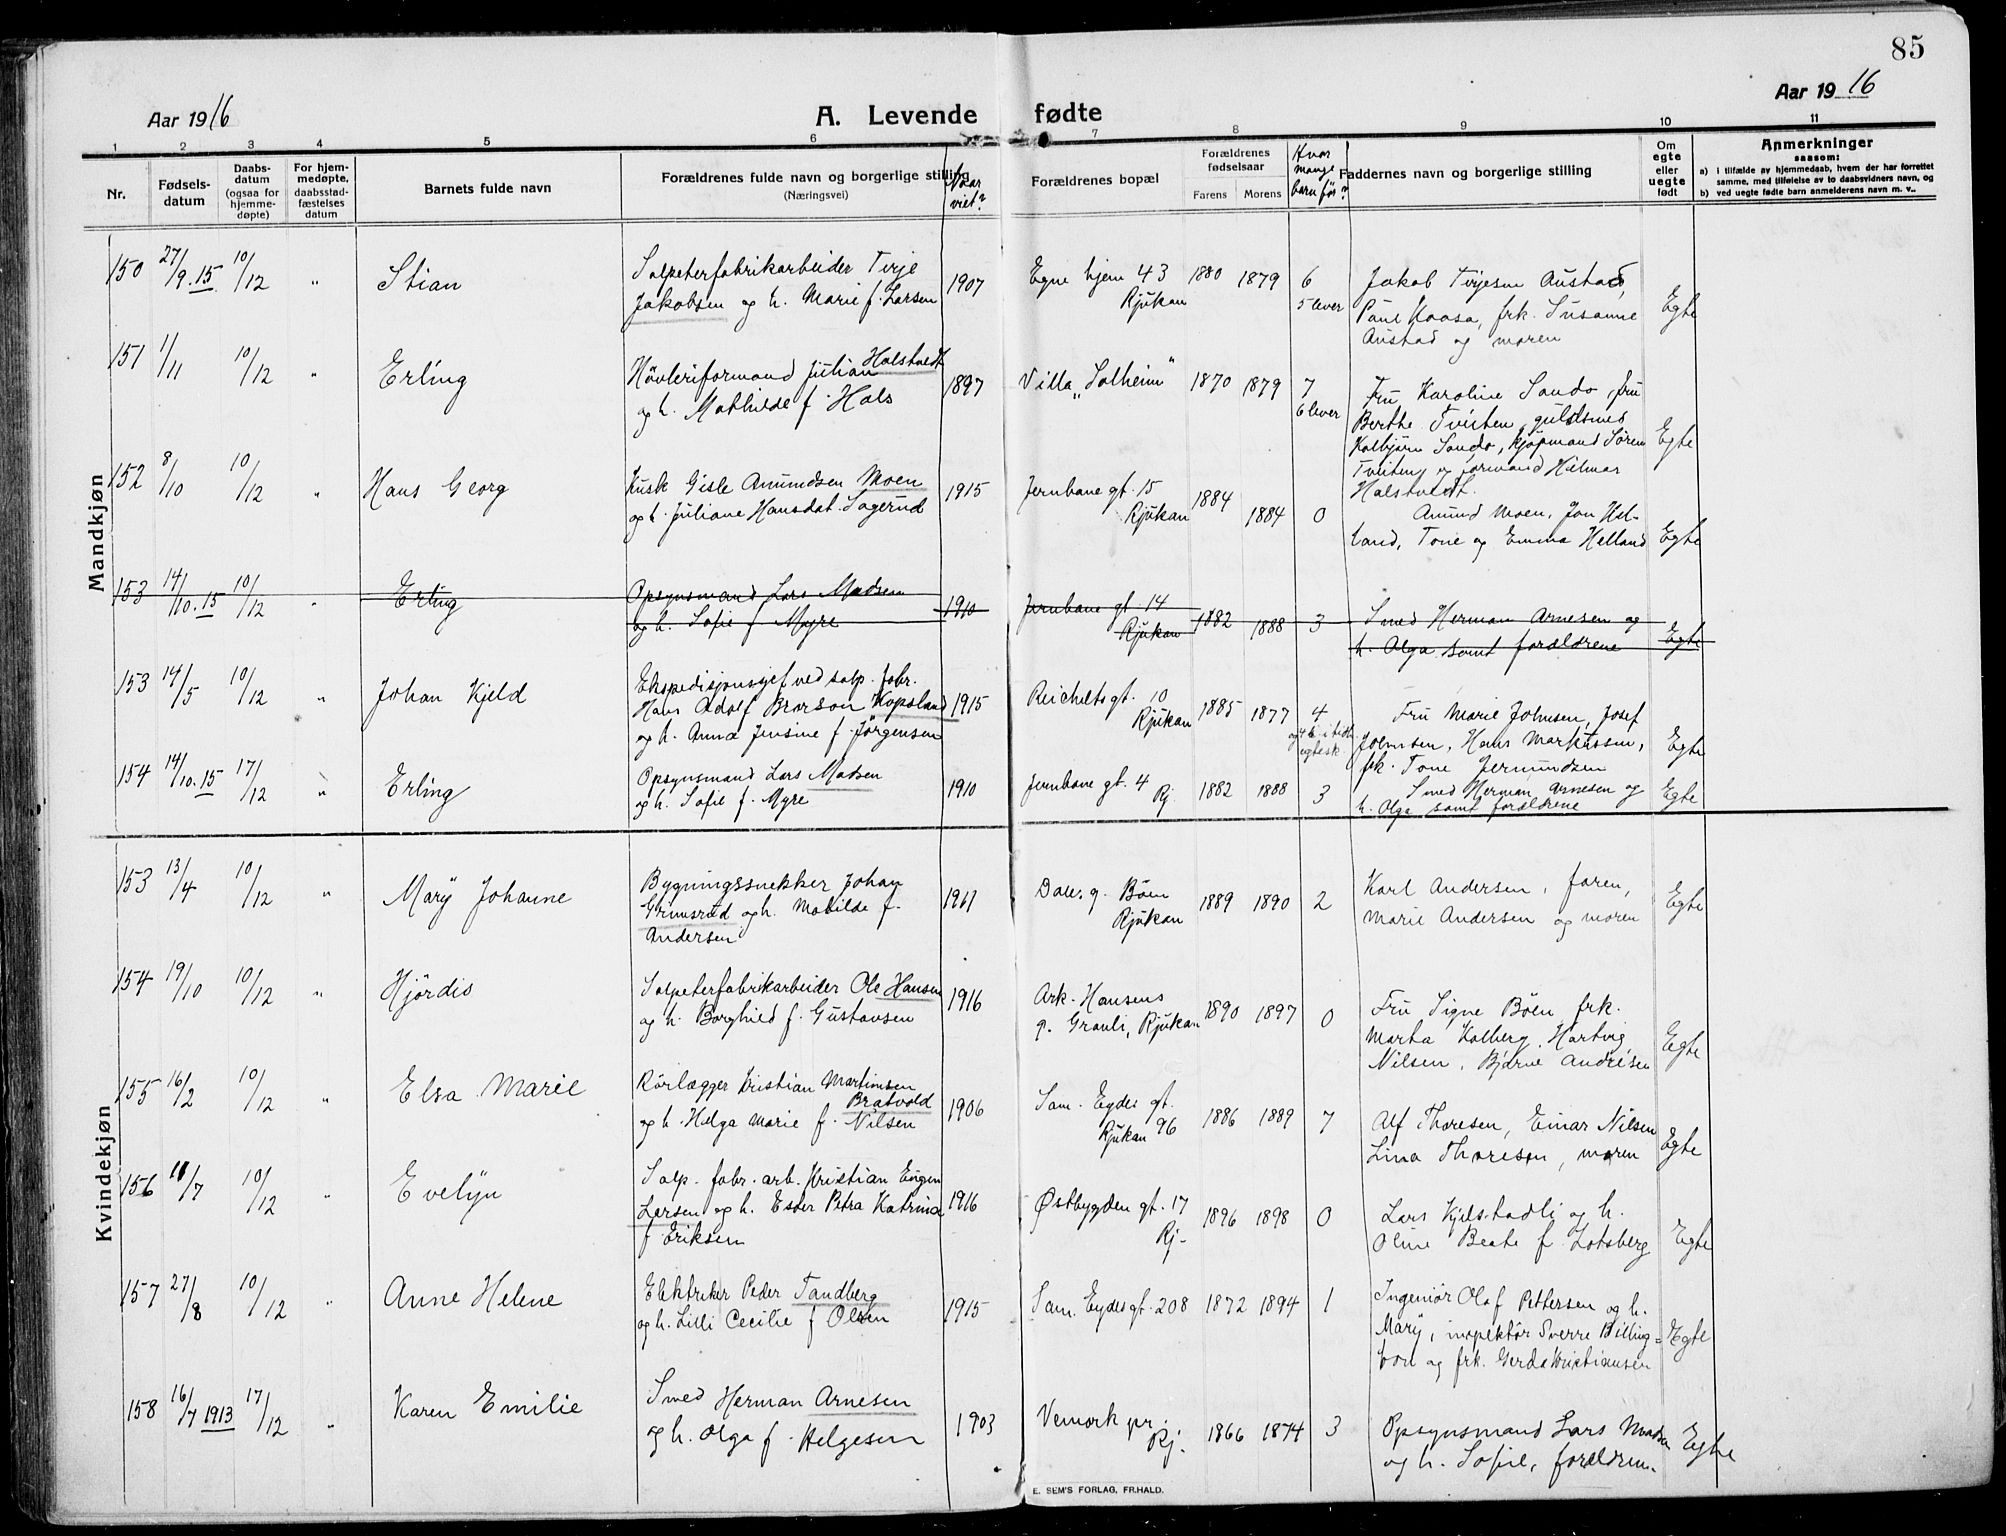 85
Aar 1916
A. Levende fødte
Aar 1916
1 2 3 4 5 6 7 8 9 10 11
Nr.
Fødsels-
datum
Daabs-
datum
(ogsaa for
hjemme-
døpte)
For hjem-
medøpte,
daabsstad-
fæstelses
datum
Barnets fulde navn
Forældrenes fulde navn og borgerlige stilling
(Næringsvei)
Naar
viet?
Forældrenes bopæl
Forældrenes
fødselsaar
Farens Morens
Hvor
mange
barn før?
Faddernes navn og borgerlige stilling
Om
egte
eller
uegte
født
Anmerkninger
saasom:
a) i tilfælde av hjemmedaab, hvem der har forrettet
samme, med tilføielse av to daabsvidners navn, og
b) ved uegte fødte barn anmelderens navn m. v..
Mandkjøn
150 27/9.15 10/12 " Stian
Salpeterfabrikarbeider Terje
Jakobsen og h. Marie f. Larsen
1907
Egne hjem 43
Rjukan
1880 1879
6
5 lever
Jakob Terjesen Austad,
Paul Kaasa, frk. Susanne
Austad og moren
Egte
151 1/11 10/12 " Erling
Høvleriformand Julian Halstvedt
og h. Mathilde f. Hals
1897
Villa „Solheim"
1870 1879
7
6 lever
Fru Karoline Sando, fru
Berthe Tveiten, guldsmed
Kolbjørn Sando, kjøpmand Søren
Tveiten og formand Hilmar
Halstvedt.
Egte
152 8/10 10/12 " Hans Georg
Kusk Gisle Amundsen Moen
og h. Juliane Hansdat. Sagerud
1915
Jernbane gt. 15
Rjukan
1884 1884 0
Amund Moen, Jon Hel-
land, Tone og Emma Helland
Egte
153 14/10.15 10/12 " Erling
Opsynsmand Lars Madsen
og h. Sofie f. Myre
1910
Jernbane gt. 14
Rjukan
1882 1888 3
Smed Herman Arnesen og
h. Olga samt forældrene
Egte
153 14/5 10/12 " Johan Kjeld
Ekspedisjonsgef ved salp. fabr.
Hans Adolf Brorson Kopsland
og h. Anna Jensine f. Jørgensen
1915
Reichelts gt. 10
Rjukan
1885 1877 4
Fru Marie Johnsen, Josef
Johnsen, Hans Markussen,
frk. Tone Jermundsen
Egte
154 14/10.15 17/12 " Erling
Opsynsmand Lars Madsen
og h. Sofie f. Myre
1910
Jernbane gt. 4 Rj.
1882 1888 3
Smed Herman Arnesen og
h. Olga samt forældrene
Egte
Kvindekjøn
153 13/4 10/12 " Mary Johanne
Bygningssnekker Johan
Grimsrud og h. Matilde f.
Andersen
1911
Dales g. Bøen
Rjukan
1889 1890 2
Karl Andersen, faren,
Marie Andersen og moren
Egte
154 19/10 10/12 " Hjørdis
Salpeterfabrikarbeider Ole Hansen
og h. Borghild f. Gustavsen
1916
Ark. Hansens
g. Granli, Rjukan
1890 1897 0
Fru Signe Bøen, frk.
Marta Kolberg, Hartvig
Nilsen, Bjarne Andresen
Egte
155 16/2 10/12 " Elsa Marie
Rørlægger Kristian Martinsen
Bratvold
og h. Helga Marie f. Nilsen
1906
Sam. Eydes gt.
Rjukan 96
1886 1889 7
Alf Thoresen, Einar Nilsen
Lina Thoresen, moren
Egte
156 11/7 10/12 " Evelyn
Salp. fabr. arb. Kristian Eugen
Larsen og h. Ester Petra Katrina
f. Eriksen
1916
Østbygden gt. 17
Rj.
1896 1898 0
Lars Kjelstadli og h.
Oline Beate f. Lotsberg
Egte
157 27/8 10/12 " Anne Helene
Elektriker Peder Tandberg
og h. Lilli Cecilie f. Olsen
1915
Sam. Eydes gt. 208
1872 1894 1
Ingeniør Olaf Pettersen og h.
Mary, inspektør Sverre Billing-
ton og frk. Gerda Kristiansen
Egte
158 16/7 1913 17/12 " Karen Emilie
Smed Herman Arnesen
og h. Olga f. Helgesen
1903
Vemork pr.
Rj.
1866 1874 3
Opsynsmand Lars Madsen
og h. Sofie, forældrene
Egte
E. SEM'S FORLAG, FR.HALD.